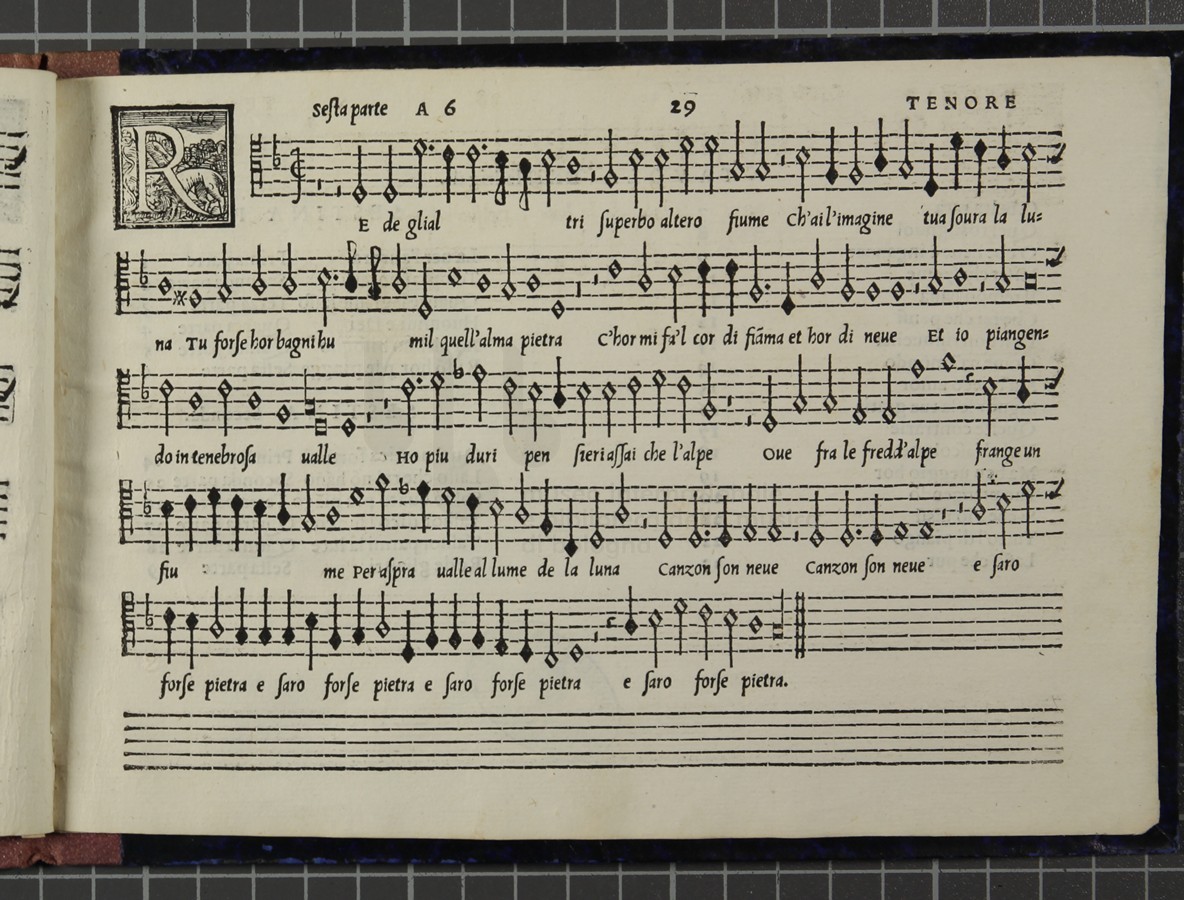 Sesta parte A 6 29 TENORE
R E de glial tri superbo altero fiume Ch'ai l'imagine tua soura la lu=
na Tu forse hor bagni hu mil quell'alma pietra C'hor mi fa'l cor di fiãma et hor di neue Et io piangen=
do in tenebrosa ualle Ho piu duri pen sieri assai che l'alpe Oue fra le fredd'alpe frange un
fiu me Per aspra ualle al lume de la luna Canzon son neue Canzon son neue e saro
forse pietra e saro forse pietra e saro forse pietra e saro forse pietra.